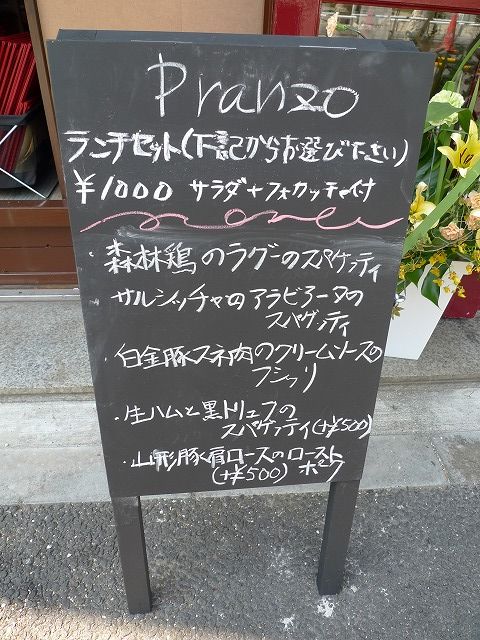 Pranzo
ランチセット(下記からお選び下さい)
¥1000 サラダ+フォカッチャ付
・森林鶏のラグーのスパゲッティ
サルシッチャのアラビアータの
スパゲッティ
・白金豚スネ肉のクリームソースの
フジッリ
・生ハムと黒トリュフの
スパゲッティ(+¥500)
・山形豚肩ロースのロースト
(+¥500) ポーク